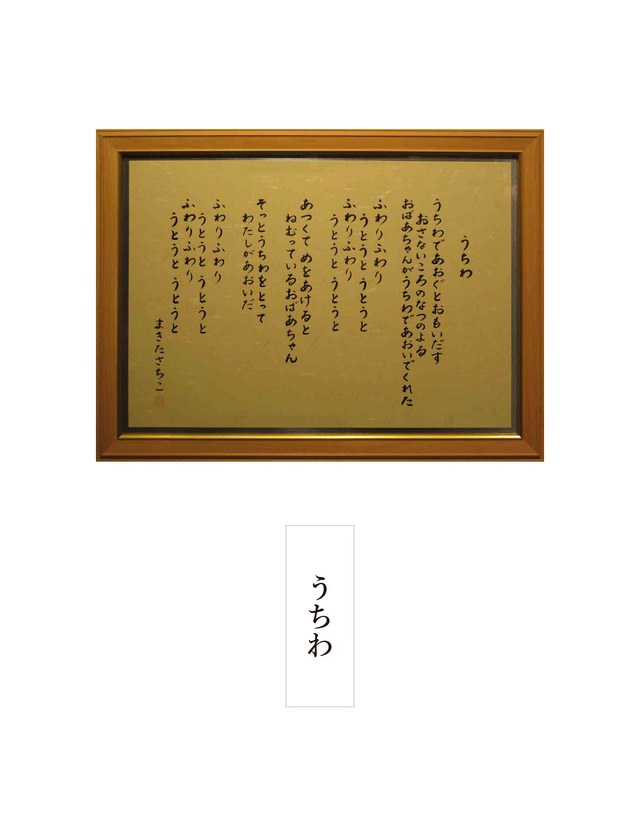 うちわ
うちわであおぐとおもいだす
おさないころのなつのよる
おばあちゃんがうちわであおいでくれた
ふわりふわり
うとうと うとうと
ふわりふわり
うとうと うとうと
あつくて めをあけると
ねむっているおばあちゃん
そっとうちわをとって
わたしがあおいだ
ふわりふわり
うとうと うとうと
ふわりふわり
うとうと うとうと
まきたさちこ
うちわ